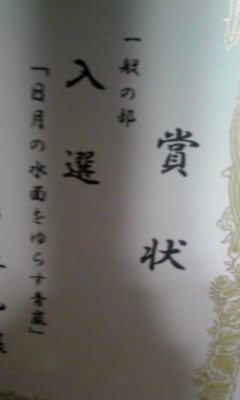 賞状
一般の部
入選
「日月の水面をゆらす青嵐」